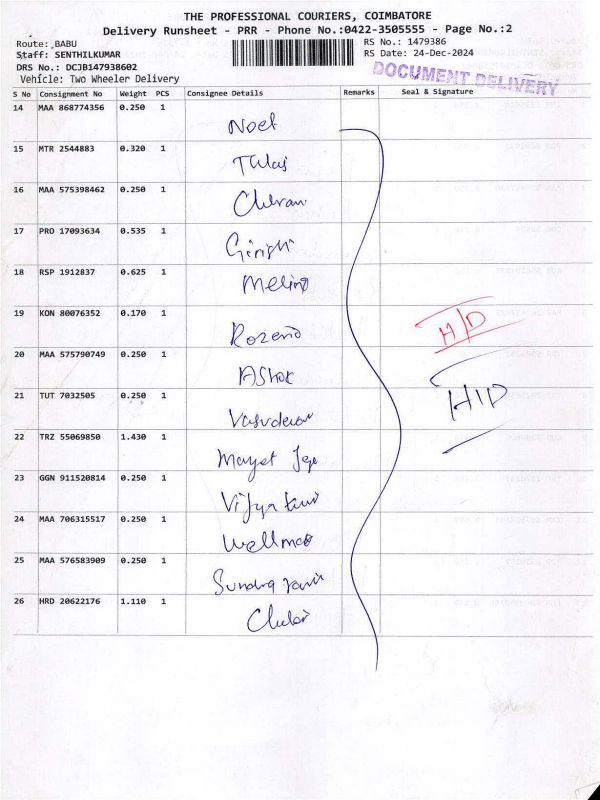 THE PROFESSIONAL COURIERS, COIMBATORE
Delivery Runsheet - PRR - Phone No.:0422-3505555 - Page No.:2
Route: BABU
Staff: SENTHILKUMAR
DRS No.: DCJB147938602
Vehicle: Two Wheeler Delivery
RS No.: 1479386
RS Date: 24-Dec-2024
DOCUMENT DELIVERY
S No Consignment No Weight PCS Consignee Details Remarks Seal & Signature
14 MAA 868774356 0.250 1 Noel
15 MTR 2544883 0.320 1 Tulasi
16 MAA 575398462 0.250 1
17 PRO 17093634 0.535 1 Girish
18 RSP 1912837 0.625 1 Melina
19 KON 80076352 0.170 1 Rozeno
H/D
20 MAA 575790749 0.250 1 Ashok
21 TUT 7032505 0.250 1 Vasudevan
H/D
22 TRZ 55069850 1.430 1
23 GGN 911520814 0.250 1
24 MAA 706315517 0.250 1
25 MAA 576583909 0.250 1
26 HRD 20622176 1.110 1